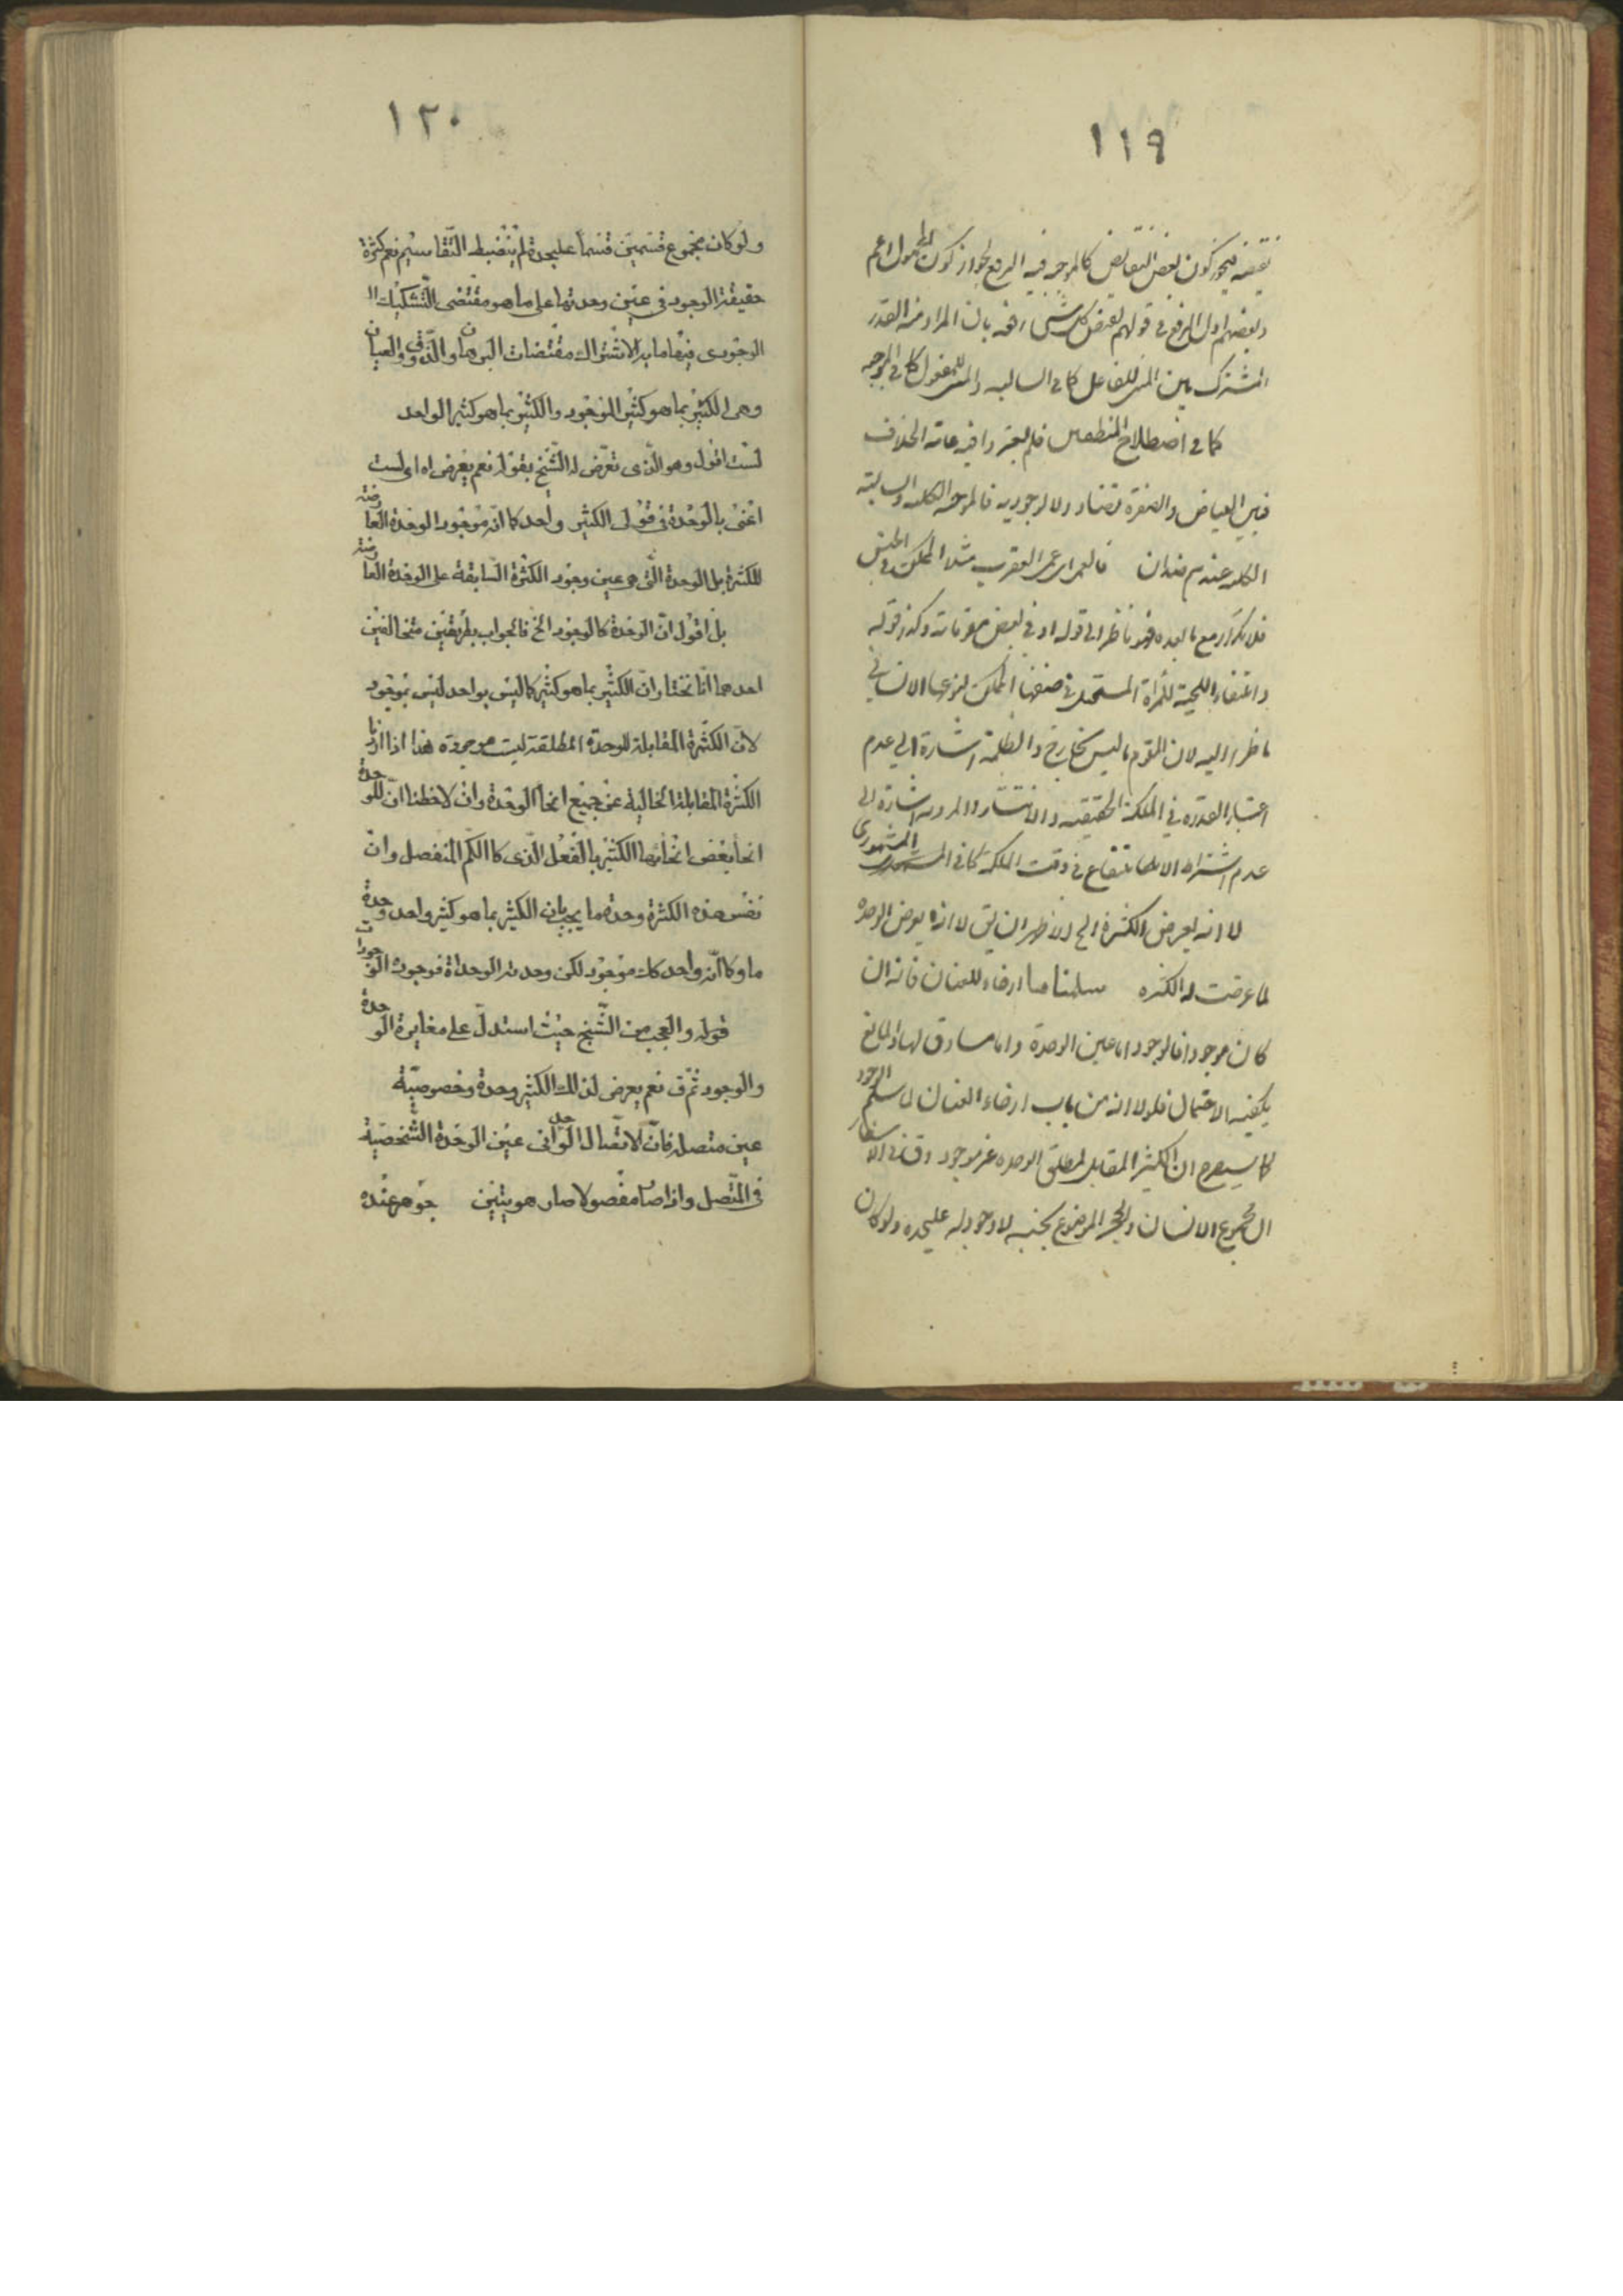 ١١٩
نقيضه فيجوز كون بعض النقايض كالموجبه فيه الرفع لجواز كون المحمول اعم
وبعضهم اول الرفع في قولهم نقيض كل شئ رفعه بان المراد منه القدر
المشترك بين المبنى للفاعل كما في السالبه والمبنى للمفعول كما في الموجبه
كما في اصطلاح المنطقيين فلم يعتبروا فيه غاية الخلاف
فبين البياض والصفرة تضاد ولا الوجوديه فالموجبة الكليه والسالبه
الكليه عندهم ضدان فالعمى عمى العقرب مثلا الممكن في الجنس
فلا تكرار مع ما بعده فهو ناظر الى قوله او في بعض مقوماته وكذا قوله
وانتفاء اللحية للمرأة المستحيل في صنفها الممكن لنوعها الانسانى
ناظر اليه لان المقوم ما ليس بخارج والظلمة اشارة الى عدم
اعتبار القدره في الملكة الحقيقيه والانتثار والمرديه اشارة الى
عدم اشتراط الارتفاع في وقت الملكة كما في المشهورى
لا انه يعرض الكثرة الخ الاظهر ان يق لا انه يعرض الوحده
لما عرضت له الكثره سلمنا ارخاء للعنان فانه ان
كان موجودا فالوجود اما عين الوحدة واما مساوق لها والمانع
يكفيه الاحتمال فلولا انه من باب ارخاء العنان لما سلم الوجود
كما سيصرح ان الكثير المقابل لمطلق الوحده غير موجود وق في الاسفار
ان مجموع الانسان والحجر الموضوع بجنبه لا وجود له عليحده ولو كان
١٢٠
ولو كان مجموع قسمين قسما عليحدة لم ينضبط التقاسيم نعم كثرة
حقيقة الوجود في عين وحدتها على ما هو مقتضى التشكيك ال
الوجودى فيها ما به الاشتراك مقتضات البرهان والذوق والعيان
وهى الكثير بما هو كثير الموجود والكثير بما هو كثير الواحد
لست اقول وهو الذى تعرض له الشيخ بقوله نعم يعرض اه اى لست
اعنى بالوحدة في قولى الكثير واحد كما انه موجود الوحدة العارضة
للكثرة بل الوحدة التى هى عين وجود الكثرة السابقة على الوحدة العارضة
بل اقول ان الوحدة كالوجود الخ فالجواب بطريقين متخالفين
احدهما انا نختار ان الكثير بما هو كثير كما ليس بواحد ليس بموجود
لان الكثرة المقابلة للوحدة المطلقة ليت موجودة هذا اذا اردنا
الكثرة المقابلة الخالية عن جميع انحا الوحدة وان لاحظنا ان للوحدة
انحا بعض انحائها الكثير بالفعل الذى كالكم المنفصل وان
نفس هذه الكثرة وحدة ما يجب ان الكثير بما هو كثير واحد وحدة
ما وكما انه واحد كك موجود لكن وحدته الوحداة فوجوده الوجودات
قوله والعجب من الشيخ حيث استدل على مغايرة الوحدة
والوجود ثم ق نعم يعرض لذلك الكثير وحدة وخصوصية
عين متصل فان الاتصال الوحدانى عين الوحدة الشخصية
في المتصل واذا صار مفصولا صار هويتين جوهر عنده